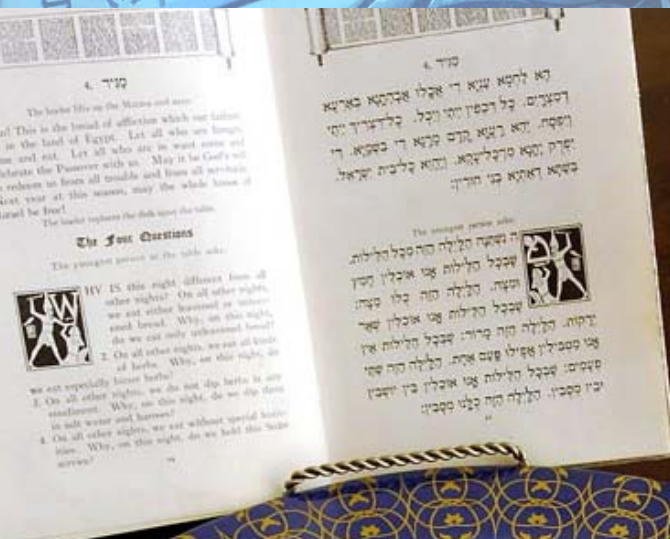 4. מַגִּיד
The leader lifts up the Matzos and says:
This is the bread of affliction which our fathers
in the land of Egypt. Let all who are hungry,
and eat. Let all who are in want come and
celebrate the Passover with us. May it be God's will
redeem us from all trouble and from all servitude.
Next year at this season, may the whole house of
Israel be free!
The leader replaces the dish upon the table.
The Four Questions
The youngest person at the table asks:
WHY IS this night different from all
other nights? On all other nights,
we eat either leavened or unleav-
ened bread. Why, on this night,
do we eat only unleavened bread?
2. On all other nights, we eat all kinds
of herbs. Why, on this night, do
we eat especially bitter herbs?
3. On all other nights, we do not dip herbs in any
condiment. Why, on this night, do we dip them
in salt water and haroses?
4. On all other nights, we eat without special festiv-
ities. Why, on this night, do we hold this Seder
service?
4. מַגִּיד
הָא לַחְמָא עַנְיָא דִּי אֲכַלוּ אַבְהָתָנָא בְּאַרְעָא
דְמִצְרָיִם. כָּל דִּכְפִין יֵיתֵי וְיֵכָל. כָּל־דִּצְרִיךְ יֵיתֵי
וְיִפְסַח. יְהֵא רַעֲוָא קֳדָם מָרָנָא דִי בִשְׁמַיָּא. דִּי
יִפְרֹק יָתָנָא וְיָת כָּל־בֵּית יִשְׂרָאֵל.
בְּשַׁתָּא דְאָתְיָא בְּנֵי חוֹרִין:
The youngest person asks:
מַה נִּשְׁתַּנָּה הַלַּיְלָה הַזֶּה מִכָּל הַלֵּילוֹת.
שֶׁבְּכָל הַלֵּילוֹת אָנוּ אוֹכְלִין חָמֵץ
וּמַצָּה. הַלַּיְלָה הַזֶּה כֻּלּוֹ מַצָּה:
שֶׁבְּכָל הַלֵּילוֹת אָנוּ אוֹכְלִין שְׁאָר
יְרָקוֹת. הַלַּיְלָה הַזֶּה מָרוֹר: שֶׁבְּכָל הַלֵּילוֹת אֵין
אָנוּ מַטְבִּילִין אֲפִילוּ פַּעַם אֶחָת. הַלַּיְלָה הַזֶּה שְׁתֵּי
פְעָמִים: שֶׁבְּכָל הַלֵּילוֹת אָנוּ אוֹכְלִין בֵּין יוֹשְׁבִין
וּבֵין מְסֻבִּין. הַלַּיְלָה הַזֶּה כֻּלָּנוּ מְסֻבִּין: